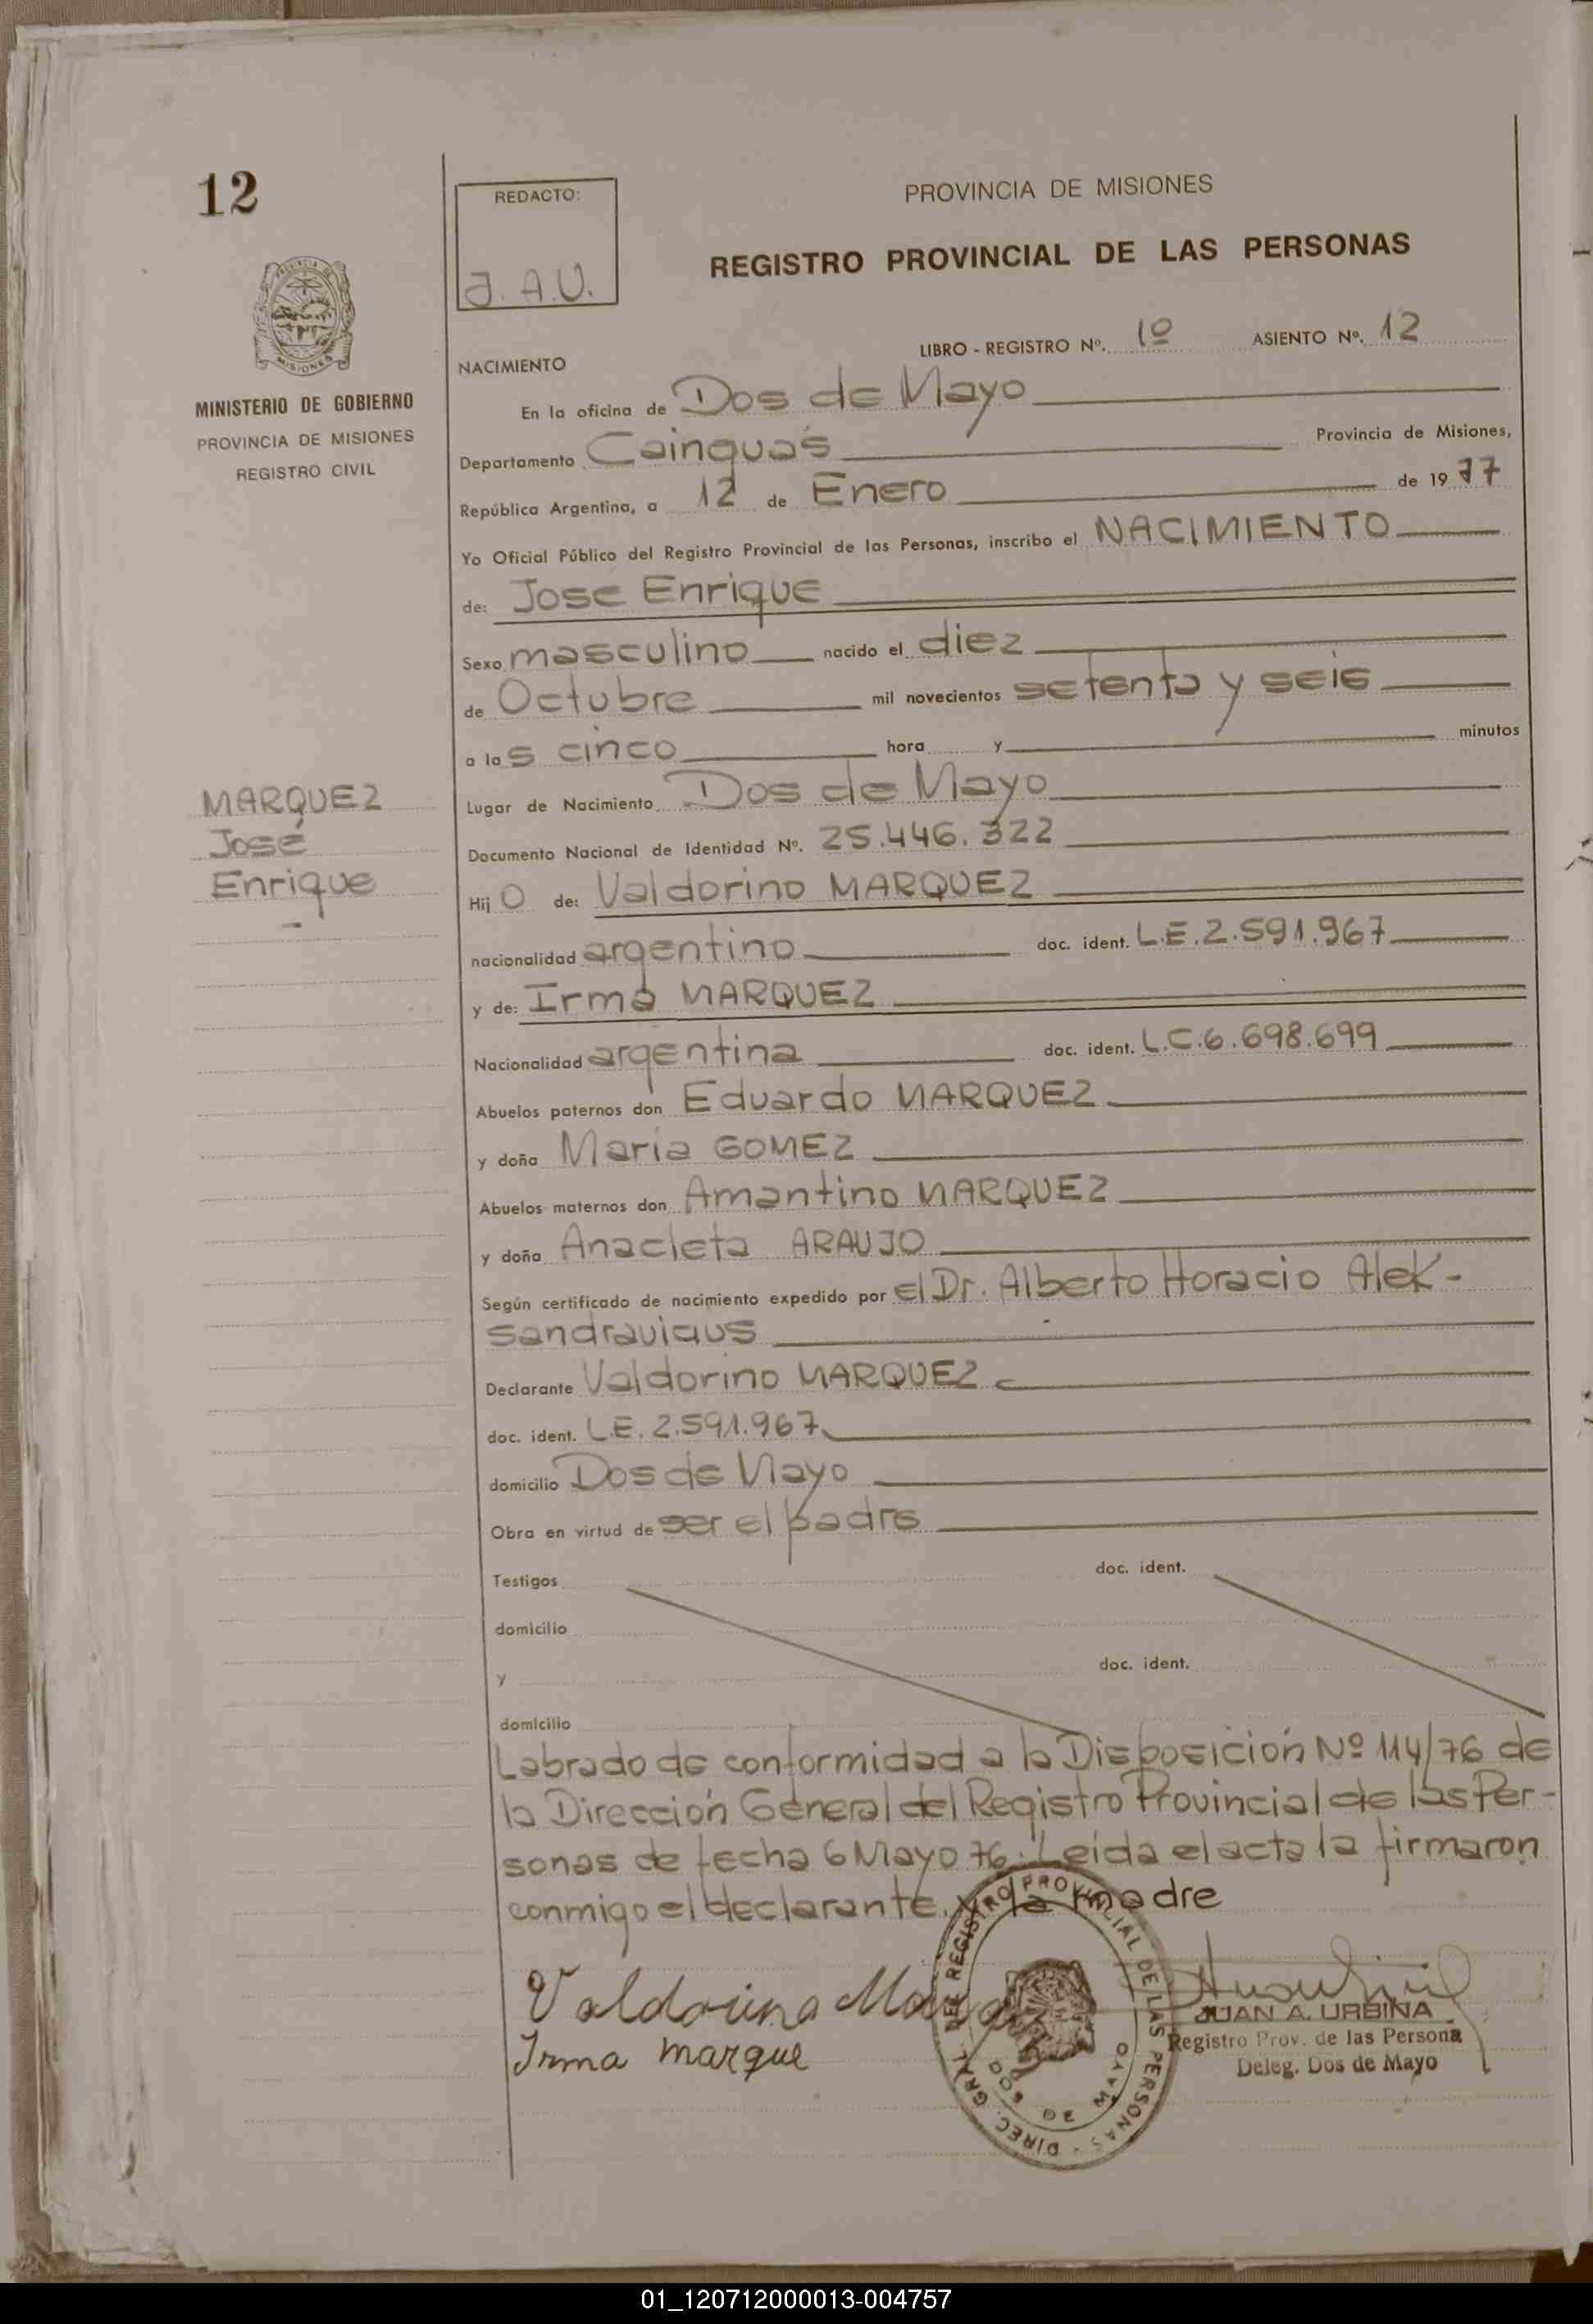 12
REDACTO:
J.A.U.
PROVINCIA DE MISIONES
REGISTRO PROVINCIAL DE LAS PERSONAS
PROVINCIA DE
MISIONES
MINISTERIO DE GOBIERNO
PROVINCIA DE MISIONES
REGISTRO CIVIL
LIBRO - REGISTRO Nº. 1º ASIENTO Nº. 12
NACIMIENTO
En la oficina de Dos de Mayo
Departamento Cainguás Provincia de Misiones,
República Argentina, a 12 de Enero de 1977
Yo Oficial Público del Registro Provincial de las Personas, inscribo el NACIMIENTO
de: Jose Enrique
Sexo masculino nacido el diez
de Octubre mil novecientos setenta y seis
a las cinco hora y minutos
Lugar de Nacimiento Dos de Mayo
MARQUEZ
José
Enrique
Documento Nacional de Identidad Nº. 25.446.322
Hijo de: Valdorino MARQUEZ
nacionalidad argentino doc. ident. L.E.2.591.967
y de: Irma MARQUEZ
Nacionalidad argentina doc. ident. L.C.6.698.699
Abuelos paternos don Eduardo MARQUEZ
y doña María GOMEZ
Abuelos maternos don Amantino MARQUEZ
y doña Anacleta ARAUJO
Según certificado de nacimiento expedido por el Dr. Alberto Horacio Alek-
sandraviaus
Declarante Valdorino MARQUEZ
doc. ident. L.E. 2.591.967
domicilio Dos de Mayo
Obra en virtud de ser el padre
Testigos doc. ident.
domicilio
y doc. ident.
domicilio
Labrado de conformidad a la Disposición Nº 114/76 de
la Dirección General del Registro Provincial de las Per-
sonas de fecha 6 Mayo 76. Leída el acta la firmaron
conmigo el declarante. y la madre
Valdorino
Irma marque
DIREC. GRAL. DEL REGISTRO PROVINCIAL DE LAS PERSONAS
DOS DE MAYO
JUAN A. URBINA
Registro Prov. de las Persona
Deleg. Dos de Mayo
01_120712000013-004757